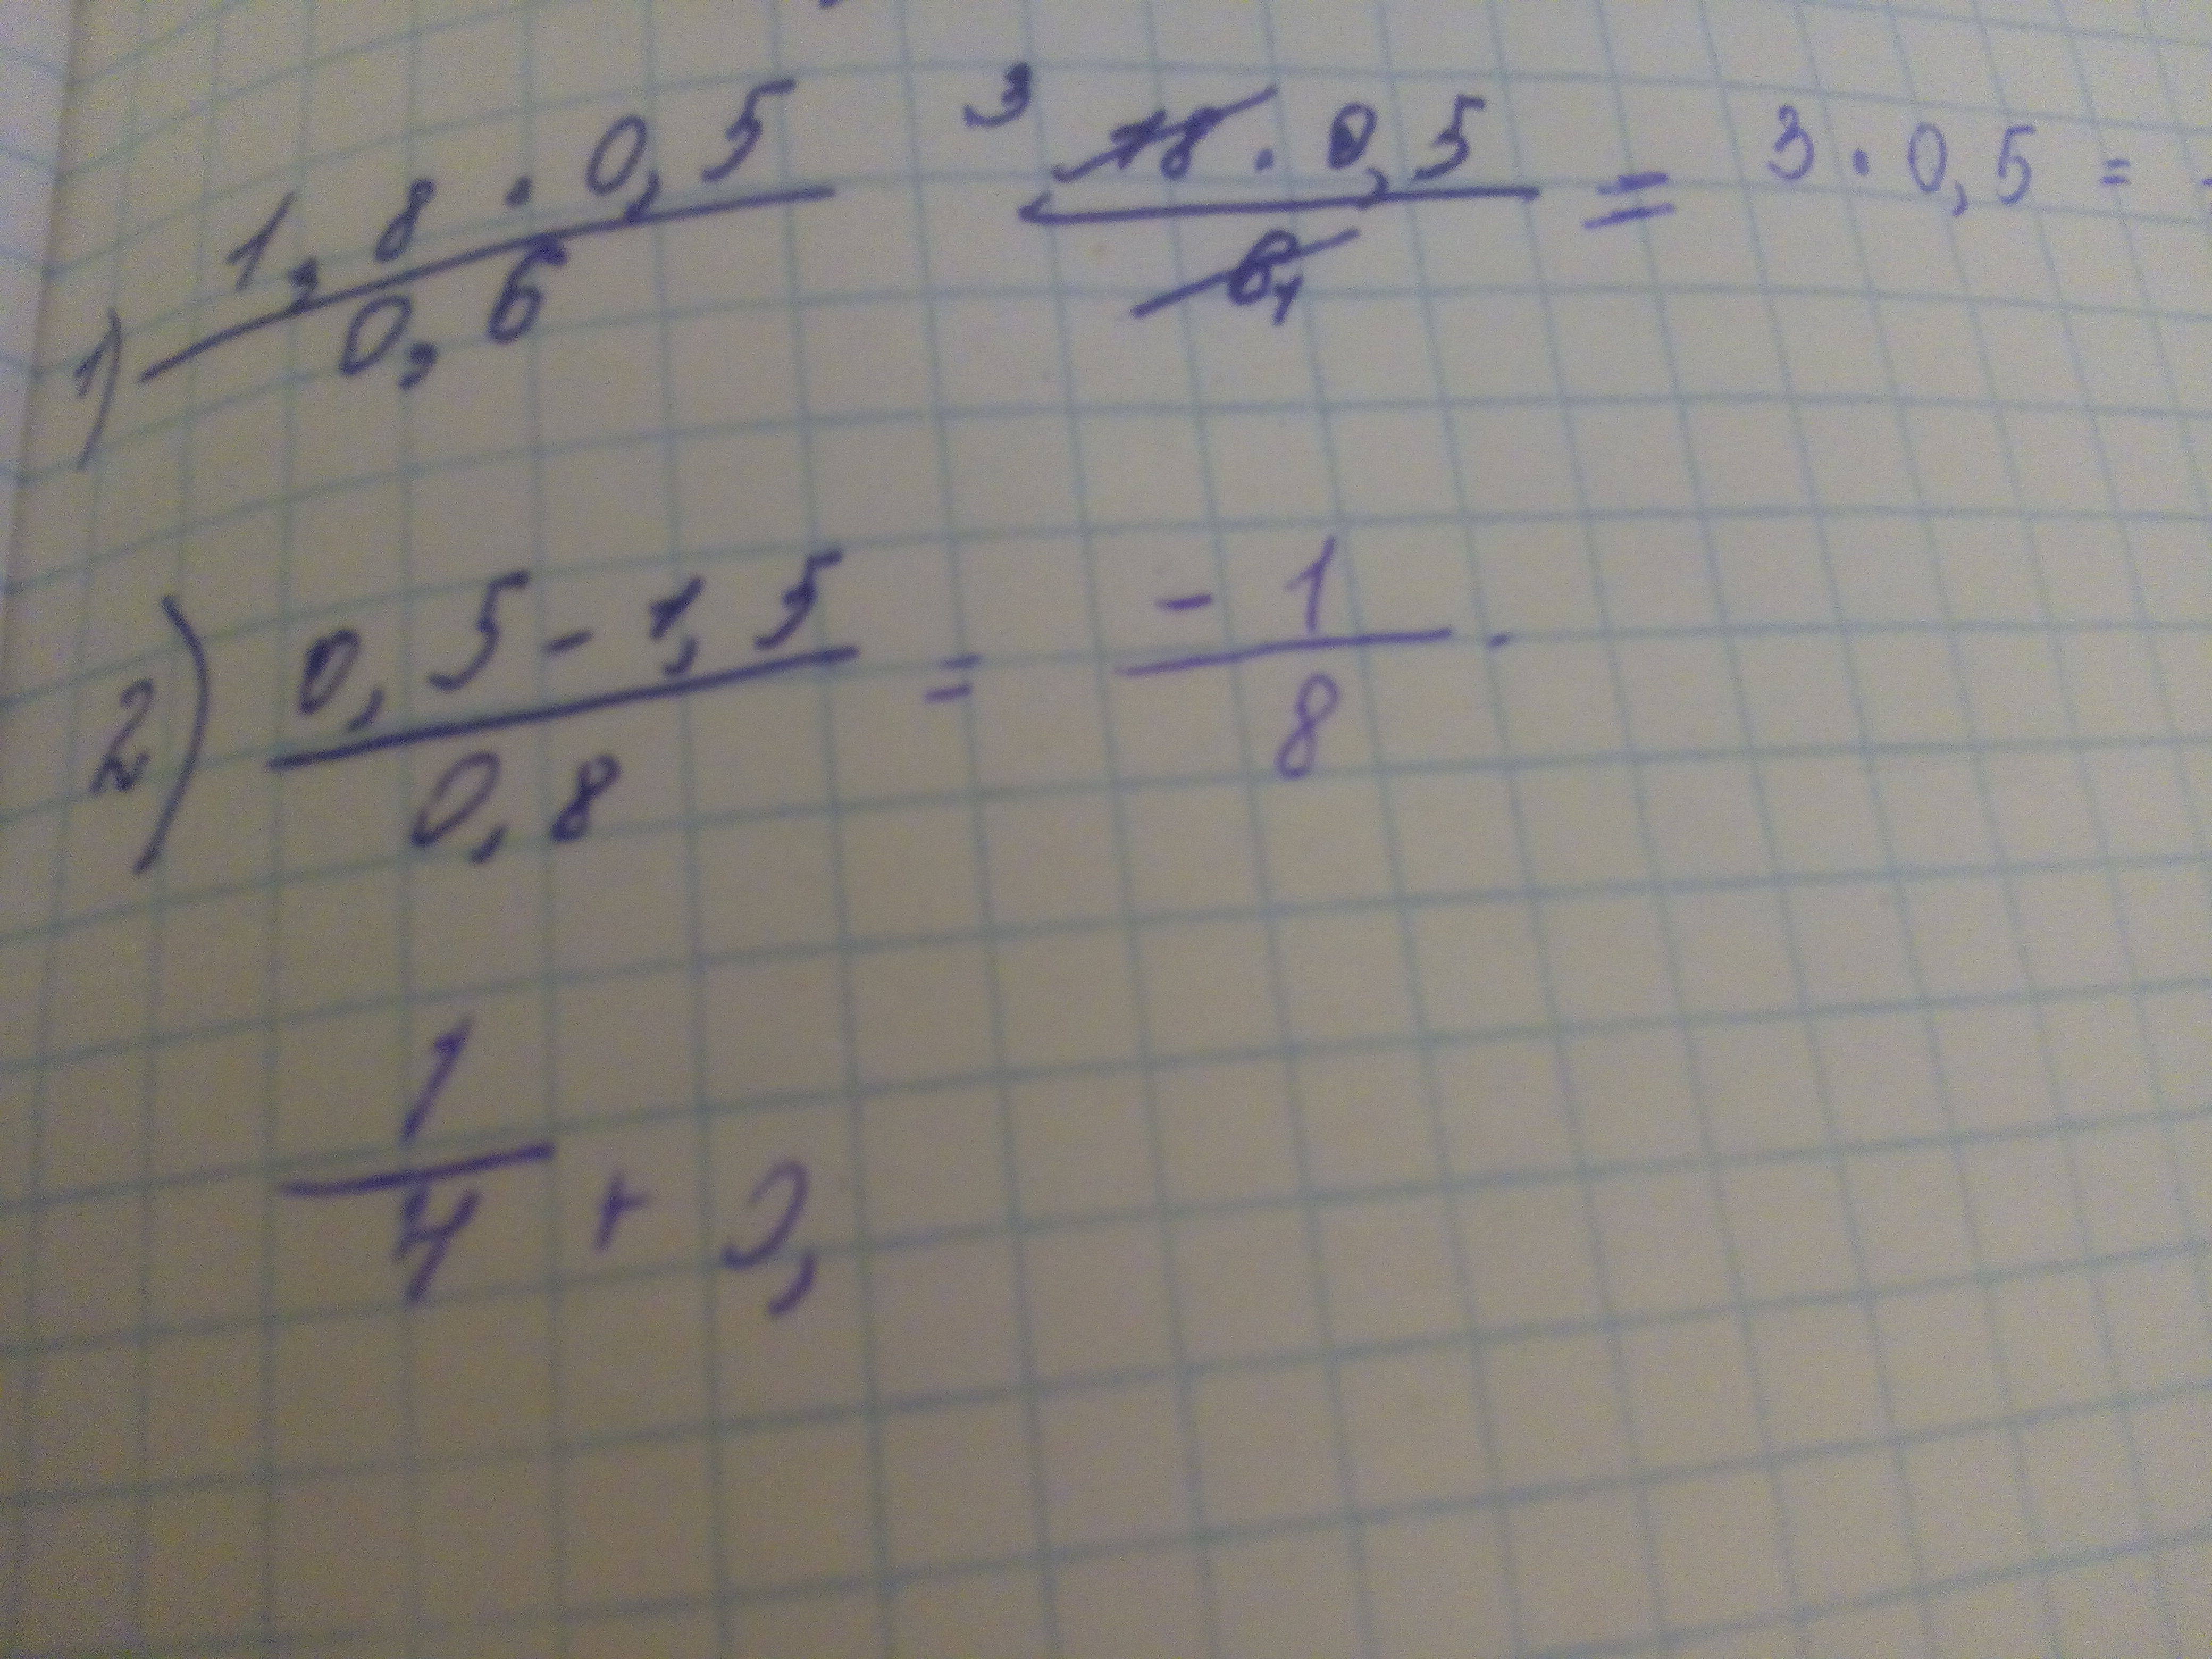 1) 1,8 · 0,5 / 0,6 3 18 · 0,5 / 6 1 = 3 · 0,5 =
2) 0,5 - 1,5 / 0,8 = - 1 / 8 .
1 / 4 + 0,